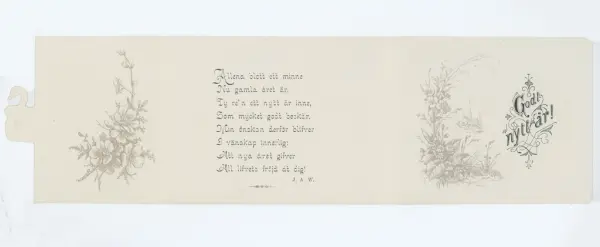 Allena blott ett minne
Nu gamla året är,
Ty re'n ett nytt år inne,
Som mycket godt beskär.
Min önskan derför blifver
I vänskap innerlig:
Att nya året gifver
All lifvets fröjd åt dig!
J. A. W.
Godt
nytt år!